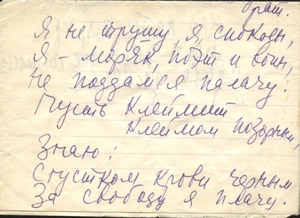 враг.
Я не трушу, я спокоен,
Я – моряк, поэт и воин,
Не поддамся палачу.
Пусть клеймит
клеймом позорным,
Знаю:
Сгустком крови черным
За свободу я плачу.